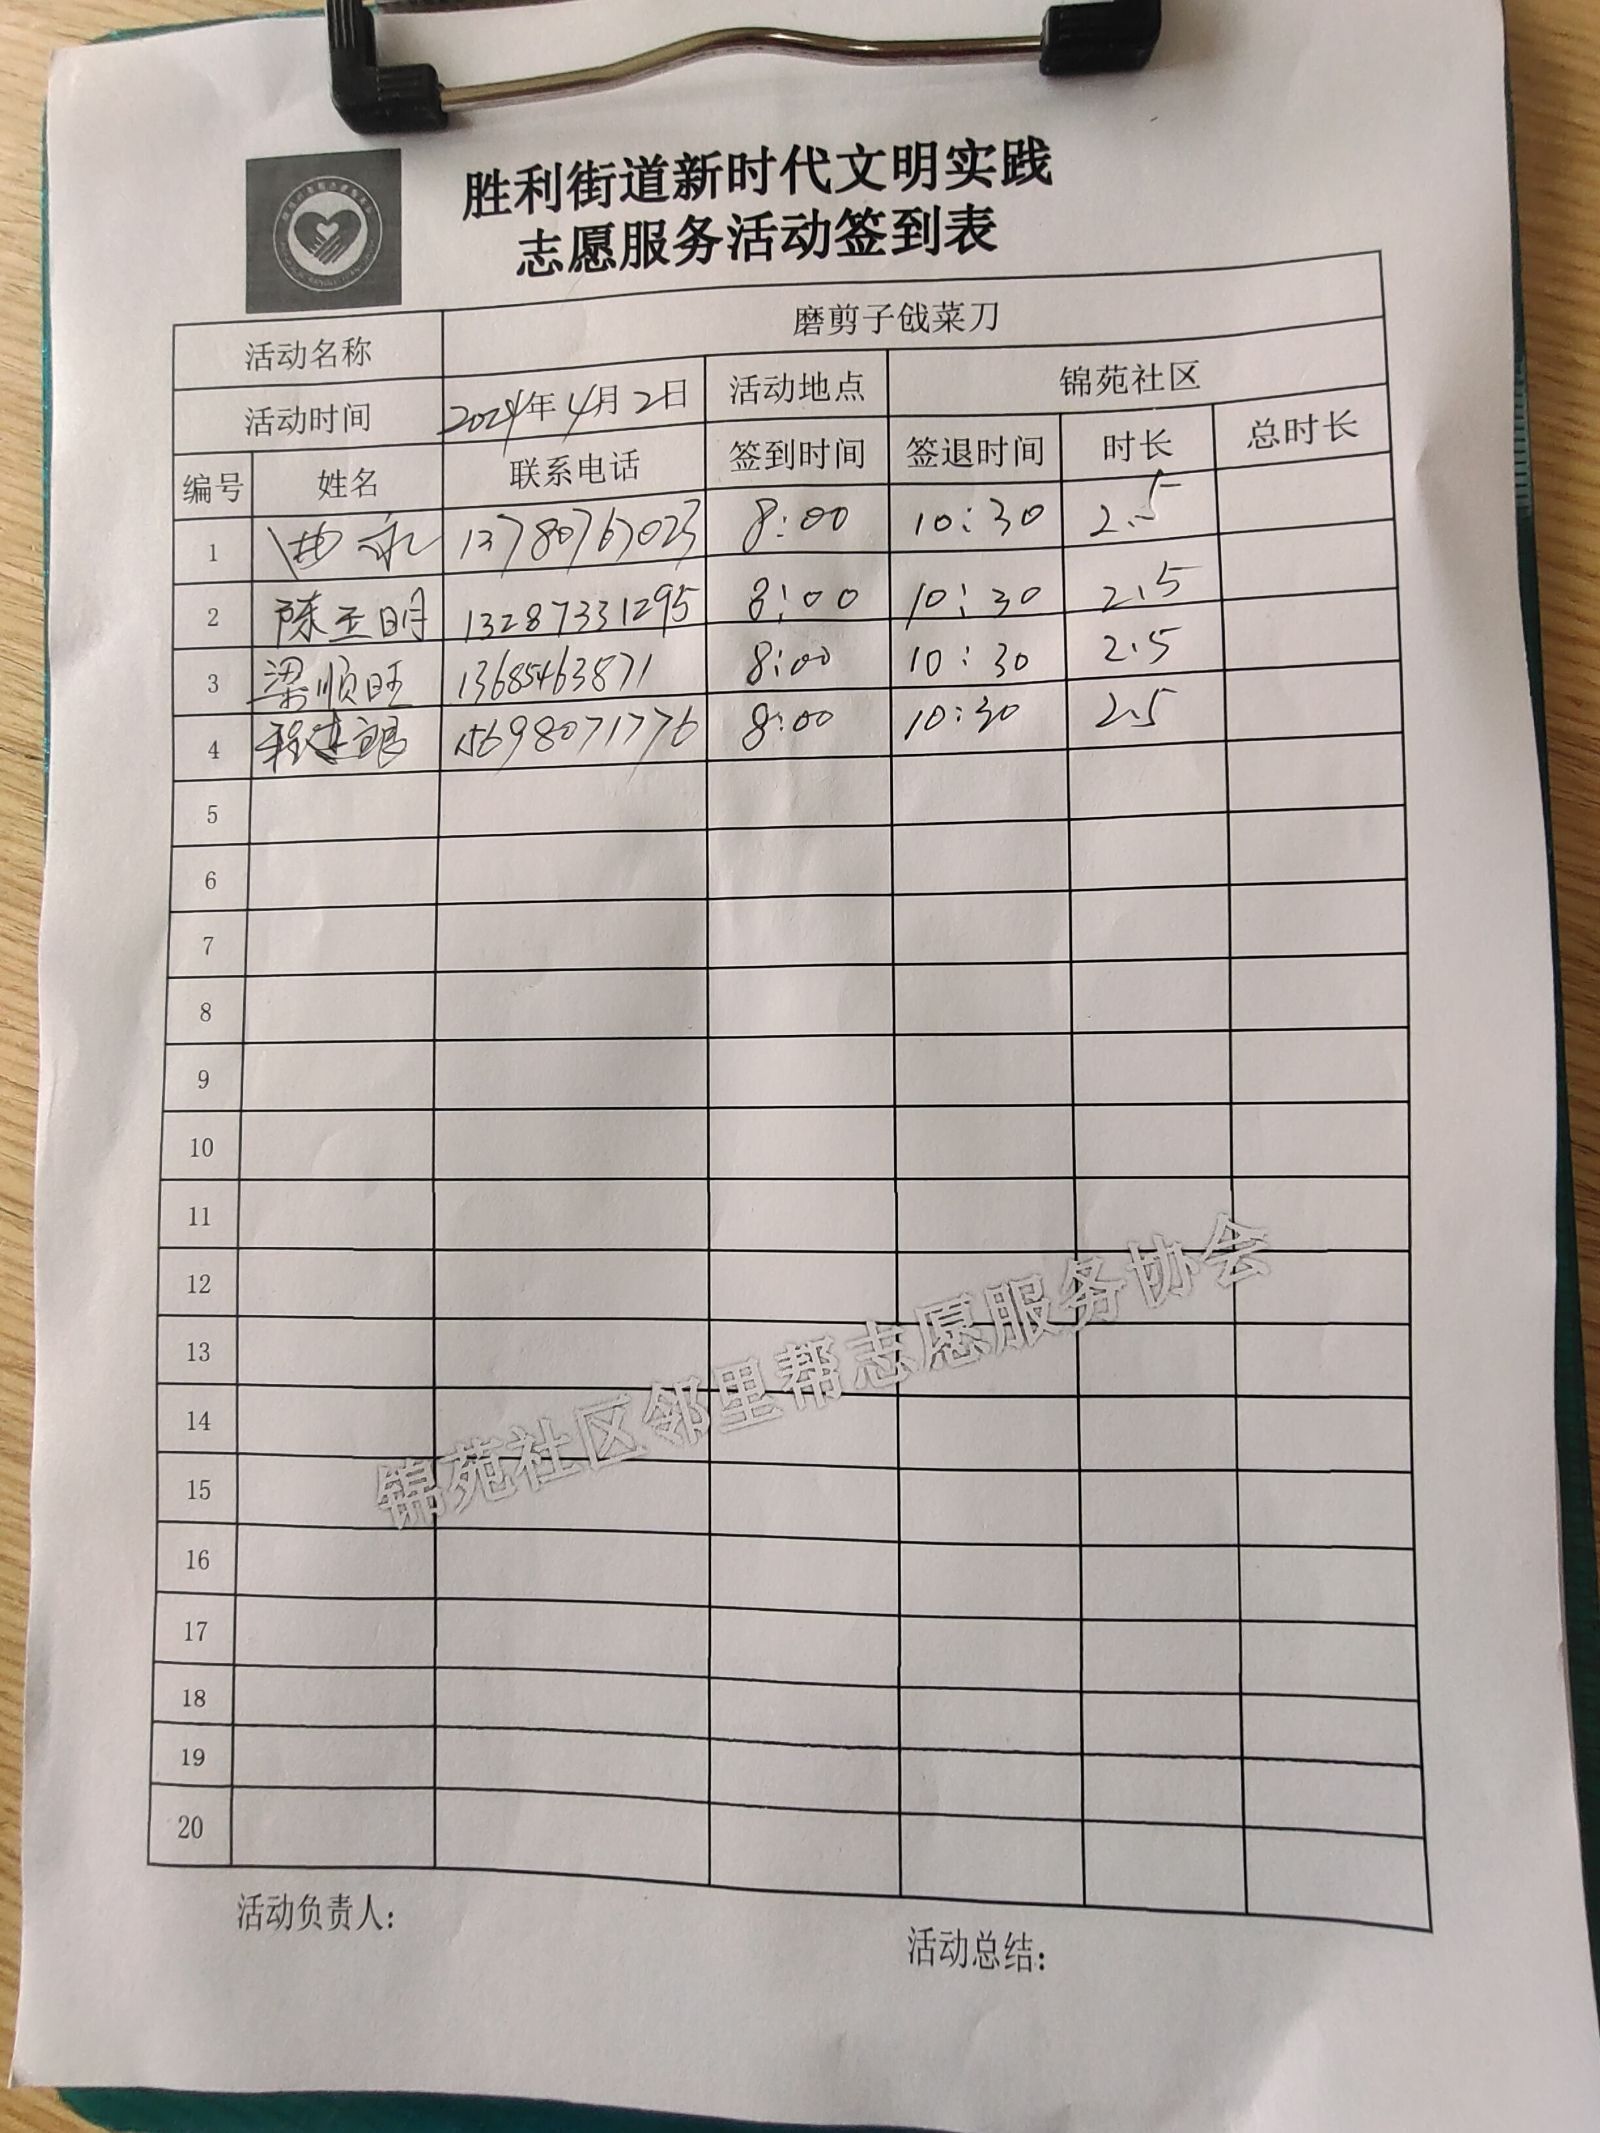 胜利街道新时代文明实践
志愿服务活动签到表
活动名称 磨剪子戗菜刀
活动时间 2024年4月2日 活动地点 锦苑社区
编号 姓名 联系电话 签到时间 签退时间 时长 总时长
1 曲永 13780767023 8:00 10:30 2.5
2 陈玉明 13287331295 8:00 10:30 2.5
3 梁顺旺 13685463871 8:00 10:30 2.5
4 程建 15698071776 8:00 10:30 2.5
5
6
7
8
9
10
11
12
13
14
15
16
17
18
19
20
锦苑社区邻里帮志愿服务协会
活动负责人:
活动总结: